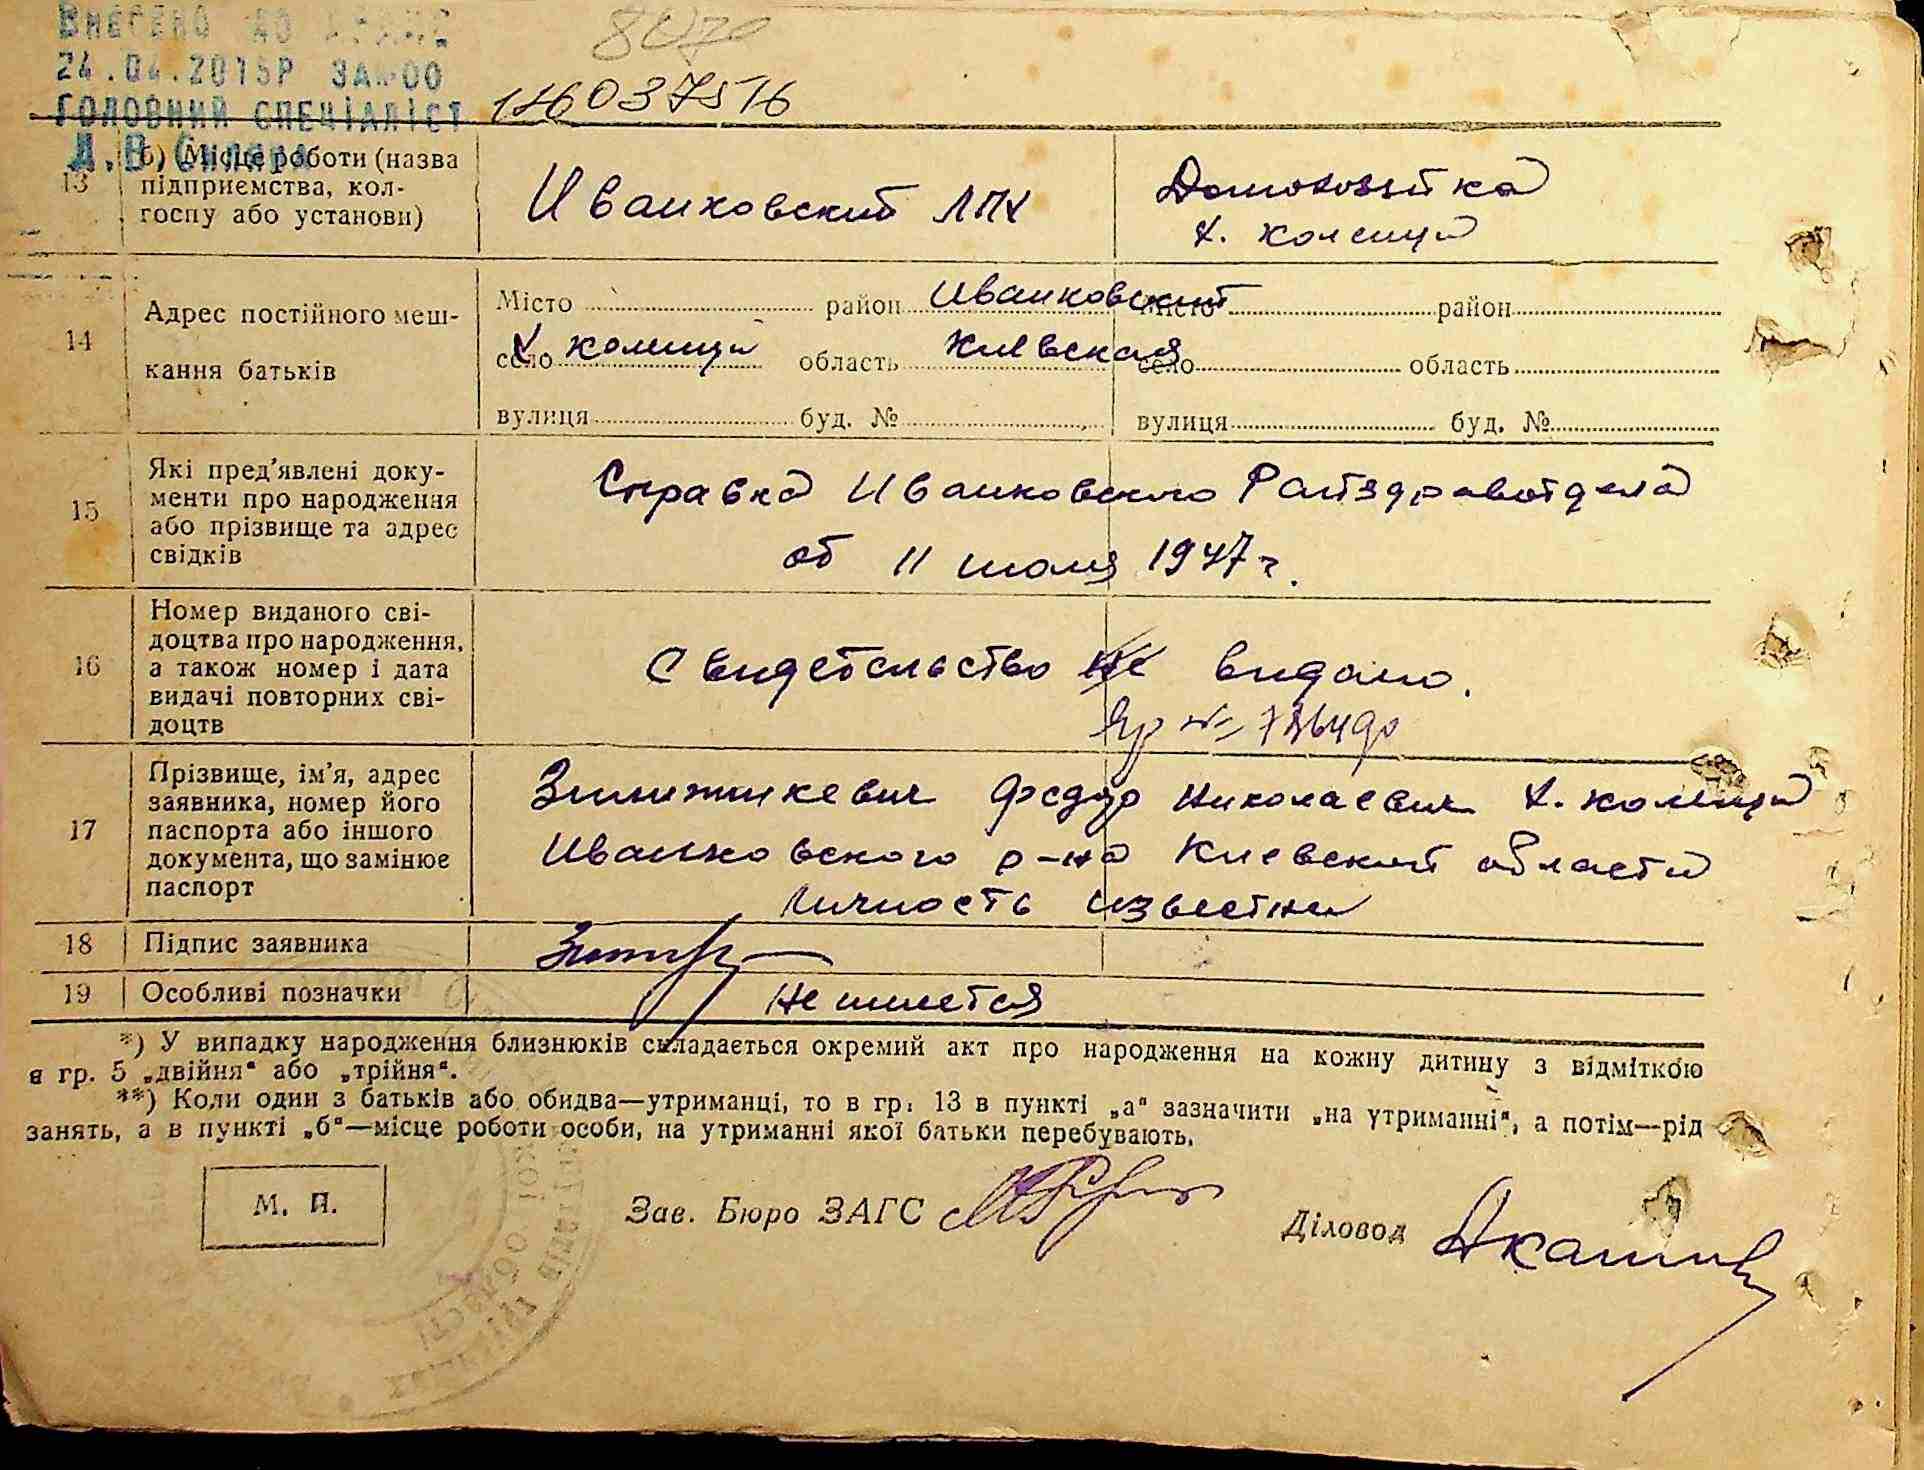 ВНЕСЕНО ДО
24.04.2015Р ЗА№00
ГОЛОВНИЙ СПЕЦІАЛІСТ
Д.В.
126037516
13
б) Місце роботи (назва
підприємства, кол-
госпу або установи)
Иванковский ЛПХ
Домохозяйка
х. Коленци
14
Адрес постійного меш-
кання батьків
Місто район Иванковский
село х. Коленци область Киевская
вулиця буд. №
Місто район
село область
вулиця буд. №
15
Які пред'явлені доку-
менти про народження
або прізвище та адрес
свідків
Справка Иванковского Райздравотдела
от 11 июля 1947 г.
16
Номер виданого сві-
доцтва про народження,
а також номер і дата
видачі повторних сві-
доцтв
Свидетельство не видано.
17
Прізвище, ім'я, адрес
заявника, номер його
паспорта або іншого
документа, що замінює
паспорт
Федор Николаевич х. Коленци
Иванковского р-на Киевской области
личность известна
18
Підпис заявника
19
Особливі позначки
Не имеется
*) У випадку народження близнюків складається окремий акт про народження на кожну дитину з відміткою
в гр. 5 „двійня" або „трійня".
**) Коли один з батьків або обидва—утриманці, то в гр. 13 в пункті „а" зазначити „на утриманні", а потім—рід
занять, а в пункті „б"—місце роботи особи, на утриманні якої батьки перебувають.
М. П.
Зав. Бюро ЗАГС
Діловод